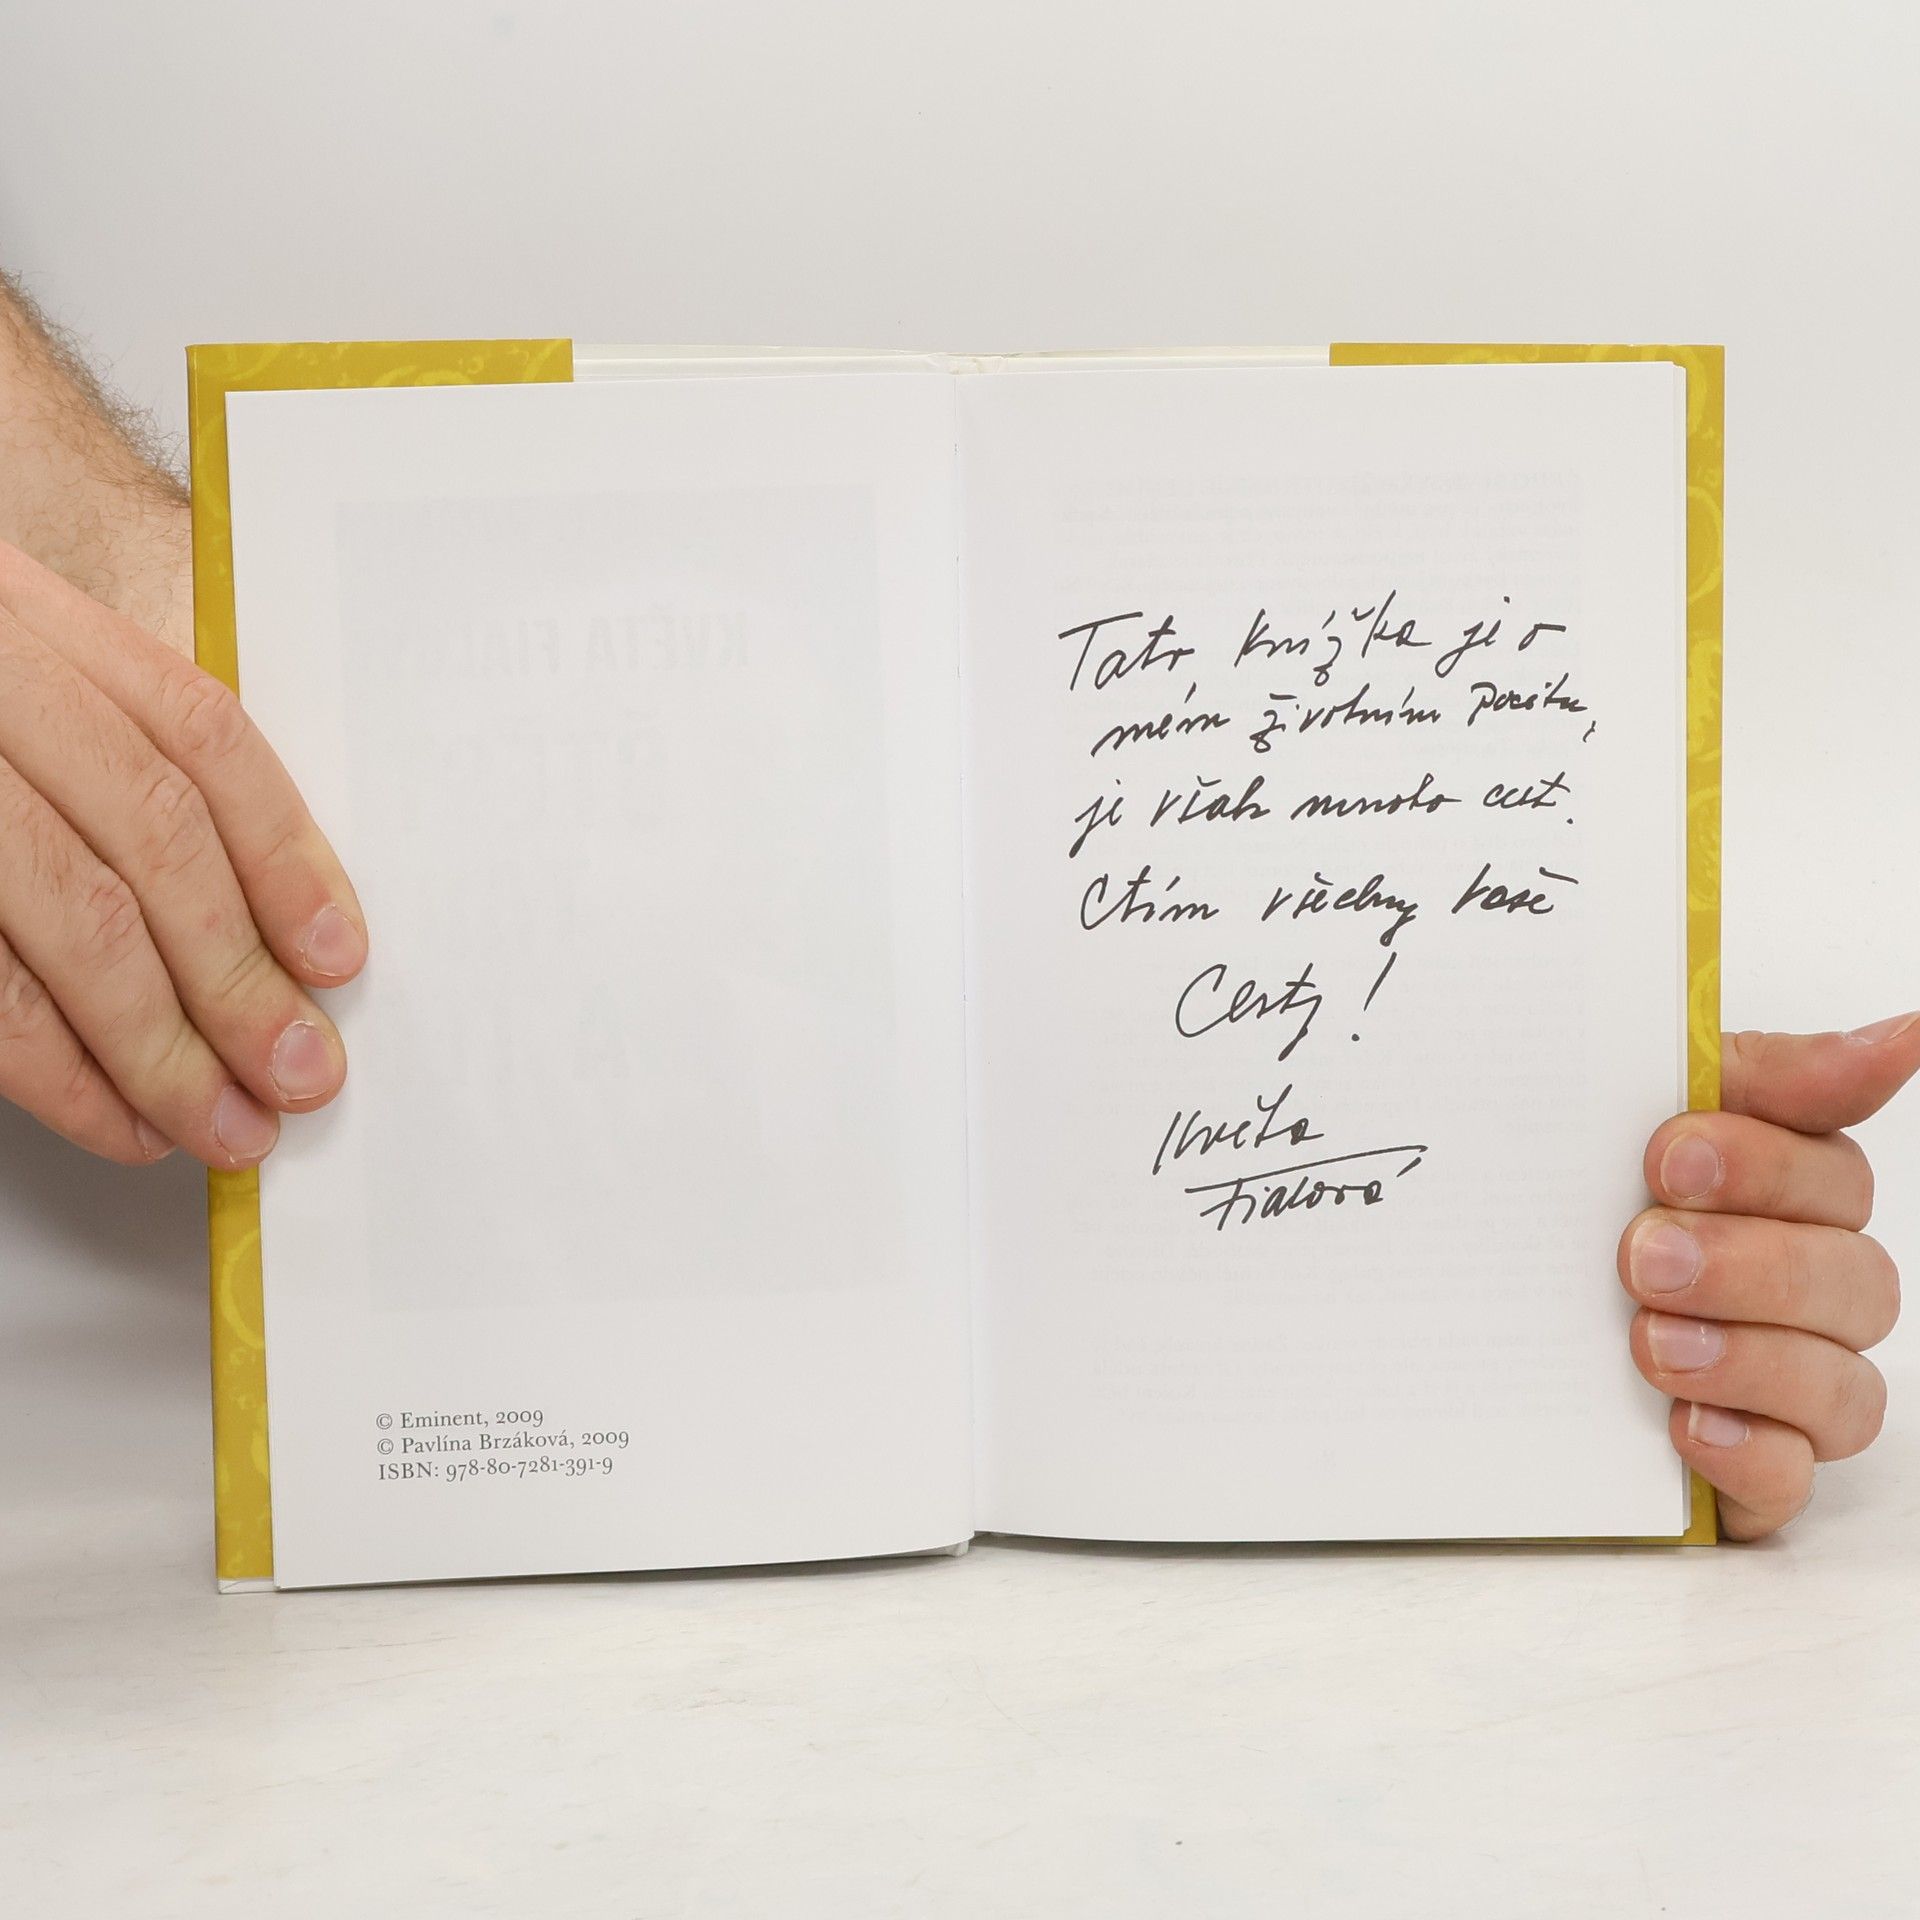 © Eminent, 2009
© Pavlína Brzáková, 2009
ISBN: 978-80-7281-391-9
Tato knížka je o
mém životním pocitu,
je však mnoho cest.
Ctím všechny vaše
Cesty!
Květa
Fialová